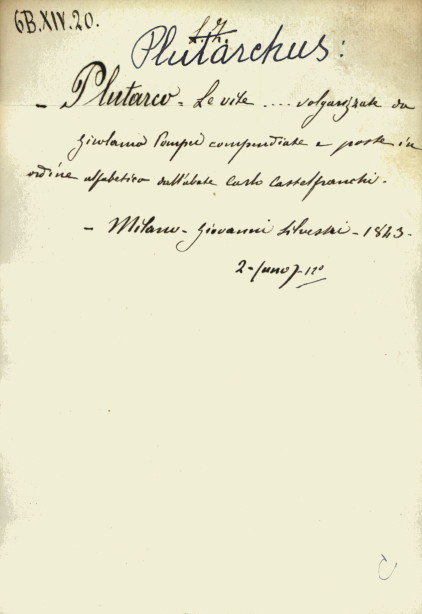 6B.XIV.20.
Plutarchus:
- Plutarco = Le vite .... volgarizzate da
Girolamo Pompei compendiate e poste in
ordine alfabetico dall'abate Carlo Castelfranchi.
- Milano - Giovanni Silvestri - 1843 -
2